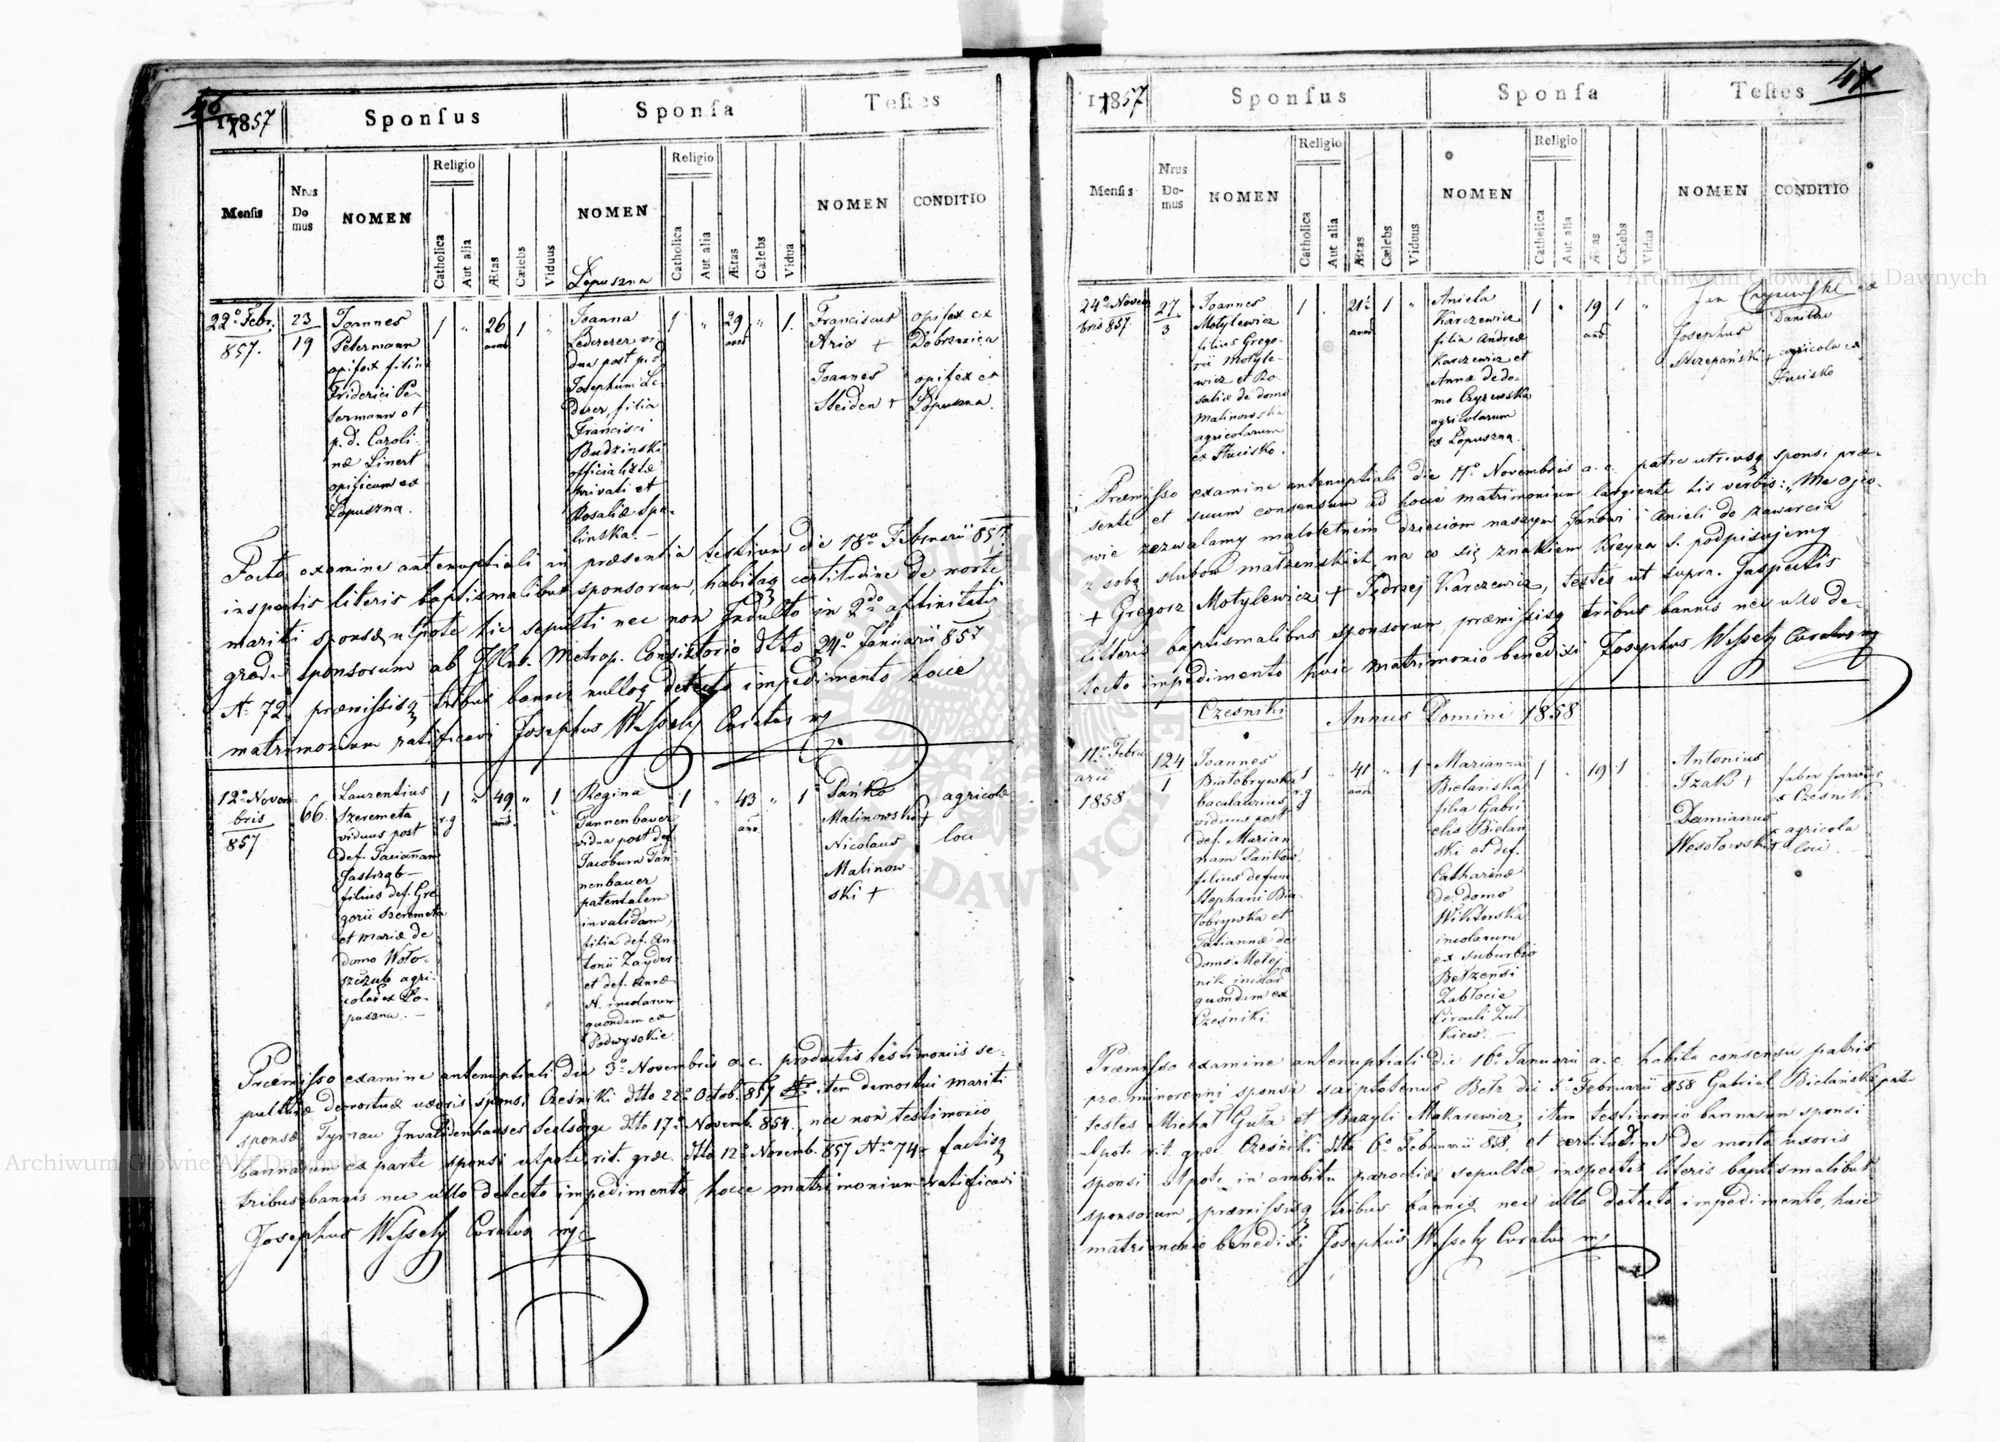 46
1857
Sponsus
Sponsa
Testes
Mensis
Nrus Do mus
NOMEN
Religio
Catholica
Aut alia
Ætas
Cælebs
Viduus
NOMEN
Religio
Catholica
Aut alia
Ætas
Cælebs
Vidua
NOMEN
CONDITIO
Łopuszna
22º Febr.
857.
23
19
Joannes
Petermann
opifex filius
Friderici Pe-
termann et
p. d. Caroli-
næ Linert
opificum ex
Łopuszna.
1
"
26
ann.
1
"
Joanna
Lederer vi-
dua post p. d.
Josephum Le-
derer, filia
Francisci
Budzinski
officialistæ
privati et
Rosaliæ Spa-
linska. —
1
"
29
ann
"
1.
Franciscus
+
Joannes
Steiden +
opifex ex
opifex ex
Łopuszna.
Facto examine antenuptiali in præsentia testium die 18va Februarii 857.
inspectis literis baptismalibus sponsorum, habitaq certitudine de morte
mariti sponsæ utpote hic sepulti nec non Indulto in 2do affinitatis
gradu sponsorum ab Illmo Metrop. Consistorio dtto 24º Januarii 857
Nº 72, præmissisq tribus bannis nulloq detecto impedimento hocce
matrimonium ratificavi Josephus Wessely Curatus mp
12º Novem
bris
857
66.
Laurentius
Szeremeta
viduus post
def. Tacianam
Jastrząb—
filius def. Gre-
gorii Szeremeta
et Mariæ de
domo Woło-
szczub agri-
colaꝝ ex Ło-
puszna. —
1
r. g
"
49
ann.
"
1
Regina
Tannenbauer
vidua post def
Jacobum Tan-
nenbauer
patentalem
invalidam,
filia def. An-
tonii Zayder
et def. Annæ
N. incolarum
quondam ex
Podwysokie.
1
"
43
ann.
"
1
Pańko
Malinowski +
Nicolaus
Malinow-
ski +
agricolæ
loci
Præmisso examine antenuptiali die 3º Novembris a. c. productis testimoniis se-
pultæ demortuæ uxoris sponsi Cześniki dtto 22º Octob. 857 item demortui mariti
sponsæ Tyrnau Invalidenhauses Seelsorge dtto 17º Novemb. 854. nec non testimonio
bannorum ex parte sponsi utpote rit. græc. dtto 12º Novemb. 857 Nro 74 factisq
tribus bannis nec ullo detecto impedimento hocce matrimonium ratificavi
Josephus Wessely Curatus mp
47
1857
Sponsus
Sponsa
Testes
Mensis
Nrus Do- mus
NOMEN
Religio
Catholica
Aut alia
Ætas
Cælebs
Viduus
NOMEN
Religio
Catholica
Aut alia
Ætas
Cælebs
Vidua
NOMEN
CONDITIO
24º Novem
bris 857.
27
3
Joannes
Motylewicz
filius Grego-
rii Motyle-
wicz et Ro-
saliæ de domo
Malinowska
agricolarum
ex Hucisko.
1
21½
ann
1
"
Aniela
Karczewicz
filia Andreæ
Karczewicz et
Annæ de do-
mo Czyzewska
agricolarum
ex Łopuszna.
1
"
19
ann
1
"
Jan Czyzewski ex
Josephus
Szczepański +
agricola ex
Hucisko
Præmisso examine antenuptiali die 11º Novembris a. c. patre utriusq sponsi præ-
sente et suum consensum ad hocce matrimonium largiente his verbis: "My ojco-
wie zezwalamy małoletnim dzieciom naszym Janowi i Anieli do zawarcia
z sobą ślubów małżeńskich, na co się znakiem Krzyża S. podpisujemy
+ Gregorz Motylewicz + Jędrzej Karczewicz, testes ut supra. Inspectis
litteris baptismalibus sponsorum præmissisq tribus bannis nec ullo de-
tecto impedimento huic matrimonio benedixi Josephus Wessely Curatus mp
Cześniki
Annus Domini 1858
11º Febru
arii
1858
124
1
Joannes
Białobrywka
baccalarius
viduus post
def. Marian
nam Pańkow,
filius defun.
Stephani Bia-
łobrywka et
Tatiannæ de
domo Matej-
nik incolaꝝ
quondam ex
Cześniki.
1
r. g
"
41
ann
"
1
Marianna
Bielańska
filia Gabri-
elis Bielań
ski et def.
Catharinæ
de domo
Wiktorska
incolarum
ex suburbio
Bełzensi
Zabłocie
Circuli Żół
kiew. —
1
"
19
1
"
Antonius
Szak +
Damianus
Wesołowski +
faber ferrarius
ex Cześniki
agricola
loci. —
Præmisso examine antenuptiali die 16º Januarii a. c. habito consensu patris
pro minorenni sponsa scriptotenus Bełz die 5º Februarii 858 Gabriel Bielański pater
testes Michał Guła et Bazyli Makarewicz, item testimonio bannorum sponsi
utpote rit. græc. Cześniki dtto 6º Februarii 858, et certitudine de morte uxoris
sponsi utpote in ambitu parochiæ sepultæ inspectis literis baptismalibus
sponsorum, præmissisq tribus bannis nec ullo detecto impedimento, huic
matrimonio benedixi Josephus Wessely Curatus mp
Archiwum Główne Akt Dawnych
Archiwum Główne Akt Dawnych